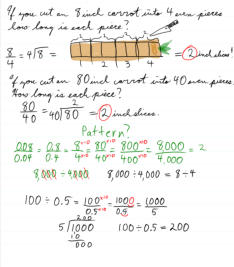 If you cut an 8 inch carrot into 4 even pieces
how long is each piece?
8/4 = 4√8 = = 2 inch slices!
1 2 3 4
If you cut an 80 inch carrot into 40 even pieces.
How long is each piece?
80/40 = 40√80 2 = 2 inch slices.
Pattern?
0.08/0.04 = 0.8/0.4 = 8/4 = 80/40 = 800/400 = 8000/4,000 = 2
8,000 ÷ 4,000 8,000 ÷ 4,000 = 8 ÷ 4
100 ÷ 0.5 = 100/0.5 = 1000/0.5 = 1000/5
200
5√1000 100 ÷ 0.5 = 200
10
000